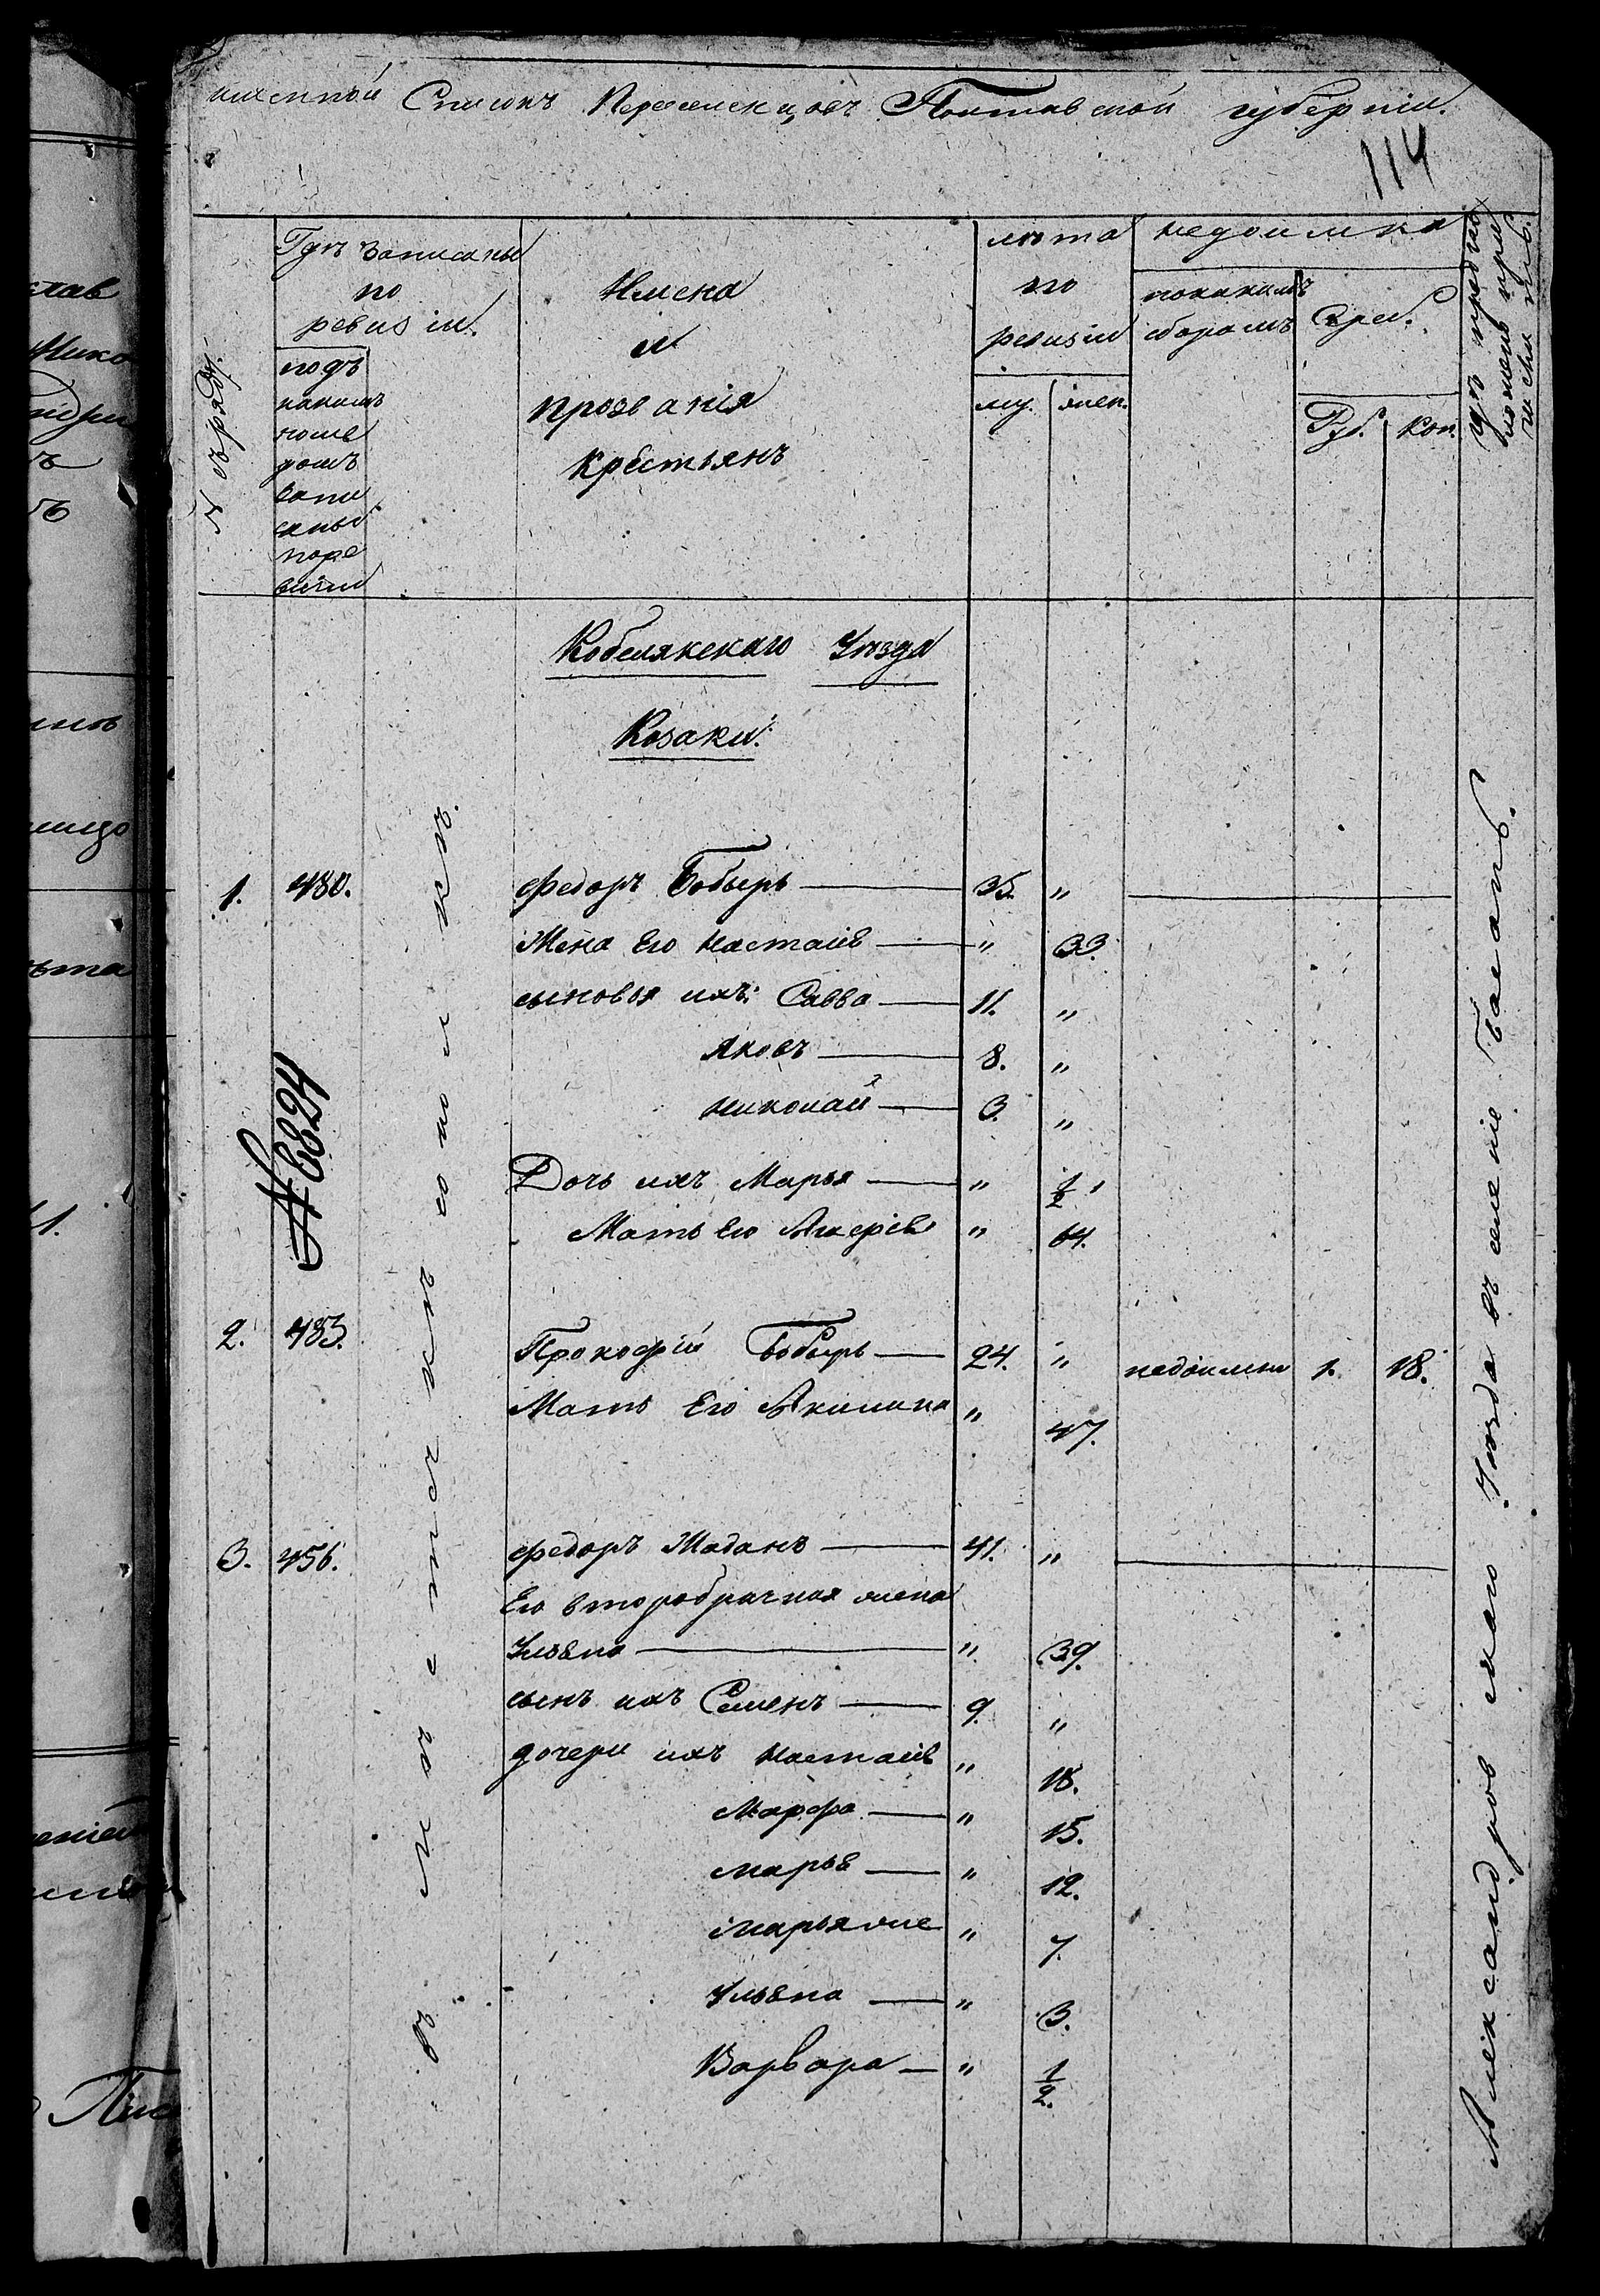 именной Списокъ Переселенцовъ Полтавской губерніи.
114
№ въ ряду.
Гдѣ записаны
по
ревизіи.
подъ
какимъ
номе
ромъ
запи
саны
поре
визіи
Имена
и
прозванія
крестьянъ
лѣта
по
ревизіи
му. жен.
недоимка
покакимъ
сборамъ
Сереб.
Руб. Коп.
Кобелякскаго Уѣзда
Козаки.
1. 480. Федоръ Бобырь 35. "
Жена Его Настасія " 33.
сыновья ихъ: Савва 11. "
Яковъ 8. "
Николай 3. "
Дочь ихъ Марья " 1/2
Мать Его Ликерія " 64.
№ 6824
2. 483. Прокофій Бобырь 24. " недоимки 1. 18.
Мать Его Акилина " 47.
3. 456. Федоръ Маданъ 41. "
Его второбрачная жена
Ульяна " 39.
сынъ ихъ Семенъ 9. "
дочери ихъ Настасія " 18.
Марфа " 15.
Марья " 12.
Марья же " 7.
Ульяна " 3.
Варвара " 1/2.
Въ мѣстечкѣ Соколкѣ.
Александровскаго Уѣзда въ селеніе